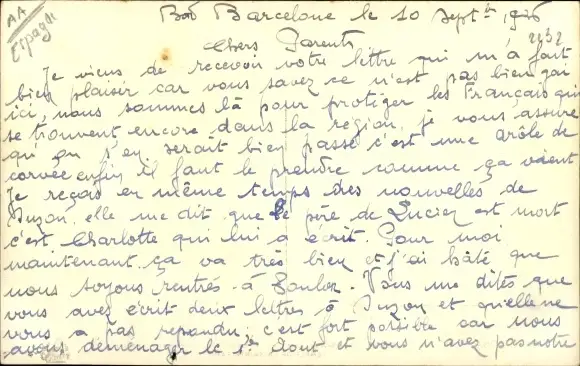 AA
Espagne
Bord Barcelone le 10 septbre 1936
2232
Chers Parents
Je viens de recevoir votre lettre qui m'a fait
bien plaisir car vous savez ce n'est pas bien gai
ici, nous sommes là pour protiger les Français qui
se trouvent encore dans la région, je vous assure
qu'on s'en serait bien passé c'est une drôle de
corvée enfin il faut le prendre comme ça vient
Je reçois en même temps des nouvelles de
Suzon, elle me dit que le père de Lucien est mort
c'est Charlotte qui lui a écrit. Pour moi
maintenant ça va très bien et j'ai hâte que
nous soyons rentrés à Toulon. Vous me dites que
vous avez écrit deux lettres à Suzon et qu'elle ne
vous a pas repondu, c'est fort possible car nous
avons déménager le 1er Aout et vous n'avez pas notre